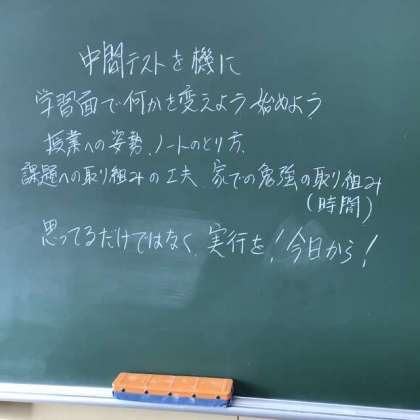 中間テストを機に
学習面で何かを変えよう 始めよう
授業への姿勢、ノートのとり方、
課題への取り組みの工夫、家での勉強の取り組み
(時間)
思ってるだけではなく、実行を!今日から!